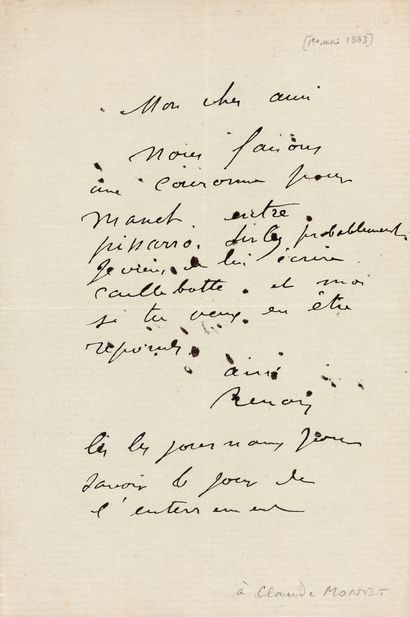 [1er mai 1883]
Mon cher ami
Nous faisons
une couronne pour
Manet. entre
pissarro. Sisley probablement
je viens de lui écrire
caillebotte. et moi
si tu veux en être
reponds.
ami
Renoir
lis les journaux pour
savoir le jour de
l'enterrement
à Claude MONET